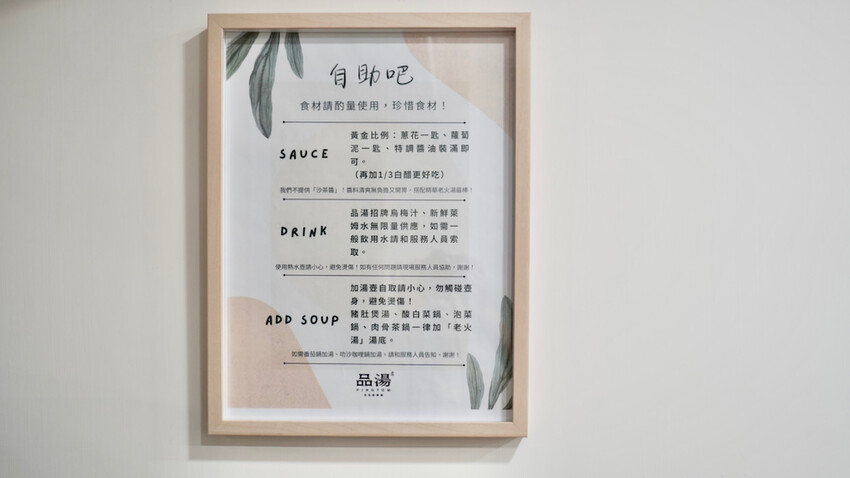 自助吧
食材請酌量使用，珍惜食材！
SAUCE
黃金比例：蔥花一匙、蘿蔔
泥一匙、特調醬油裝滿即
可。
（再加1/3白醋更好吃）
我們不提供「沙茶醬」！醬料清爽無負擔又開胃，搭配精華老火湯最棒！
DRINK
品湯招牌烏梅汁、新鮮萊
姆水無限量供應，如需一
般飲用水請和服務人員索
取。
使用熱水壺請小心，避免燙傷！如有任何問題請現場服務人員協助，謝謝！
ADD SOUP
加湯壺自取請小心，勿觸碰壺
身，避免燙傷！
豬肚煲湯、酸白菜鍋、泡菜
鍋、肉骨茶鍋一律加「老火
湯」湯底。
如需番茄鍋加湯、叻沙咖哩鍋加湯，請和服務人員告知，謝謝！
品湯